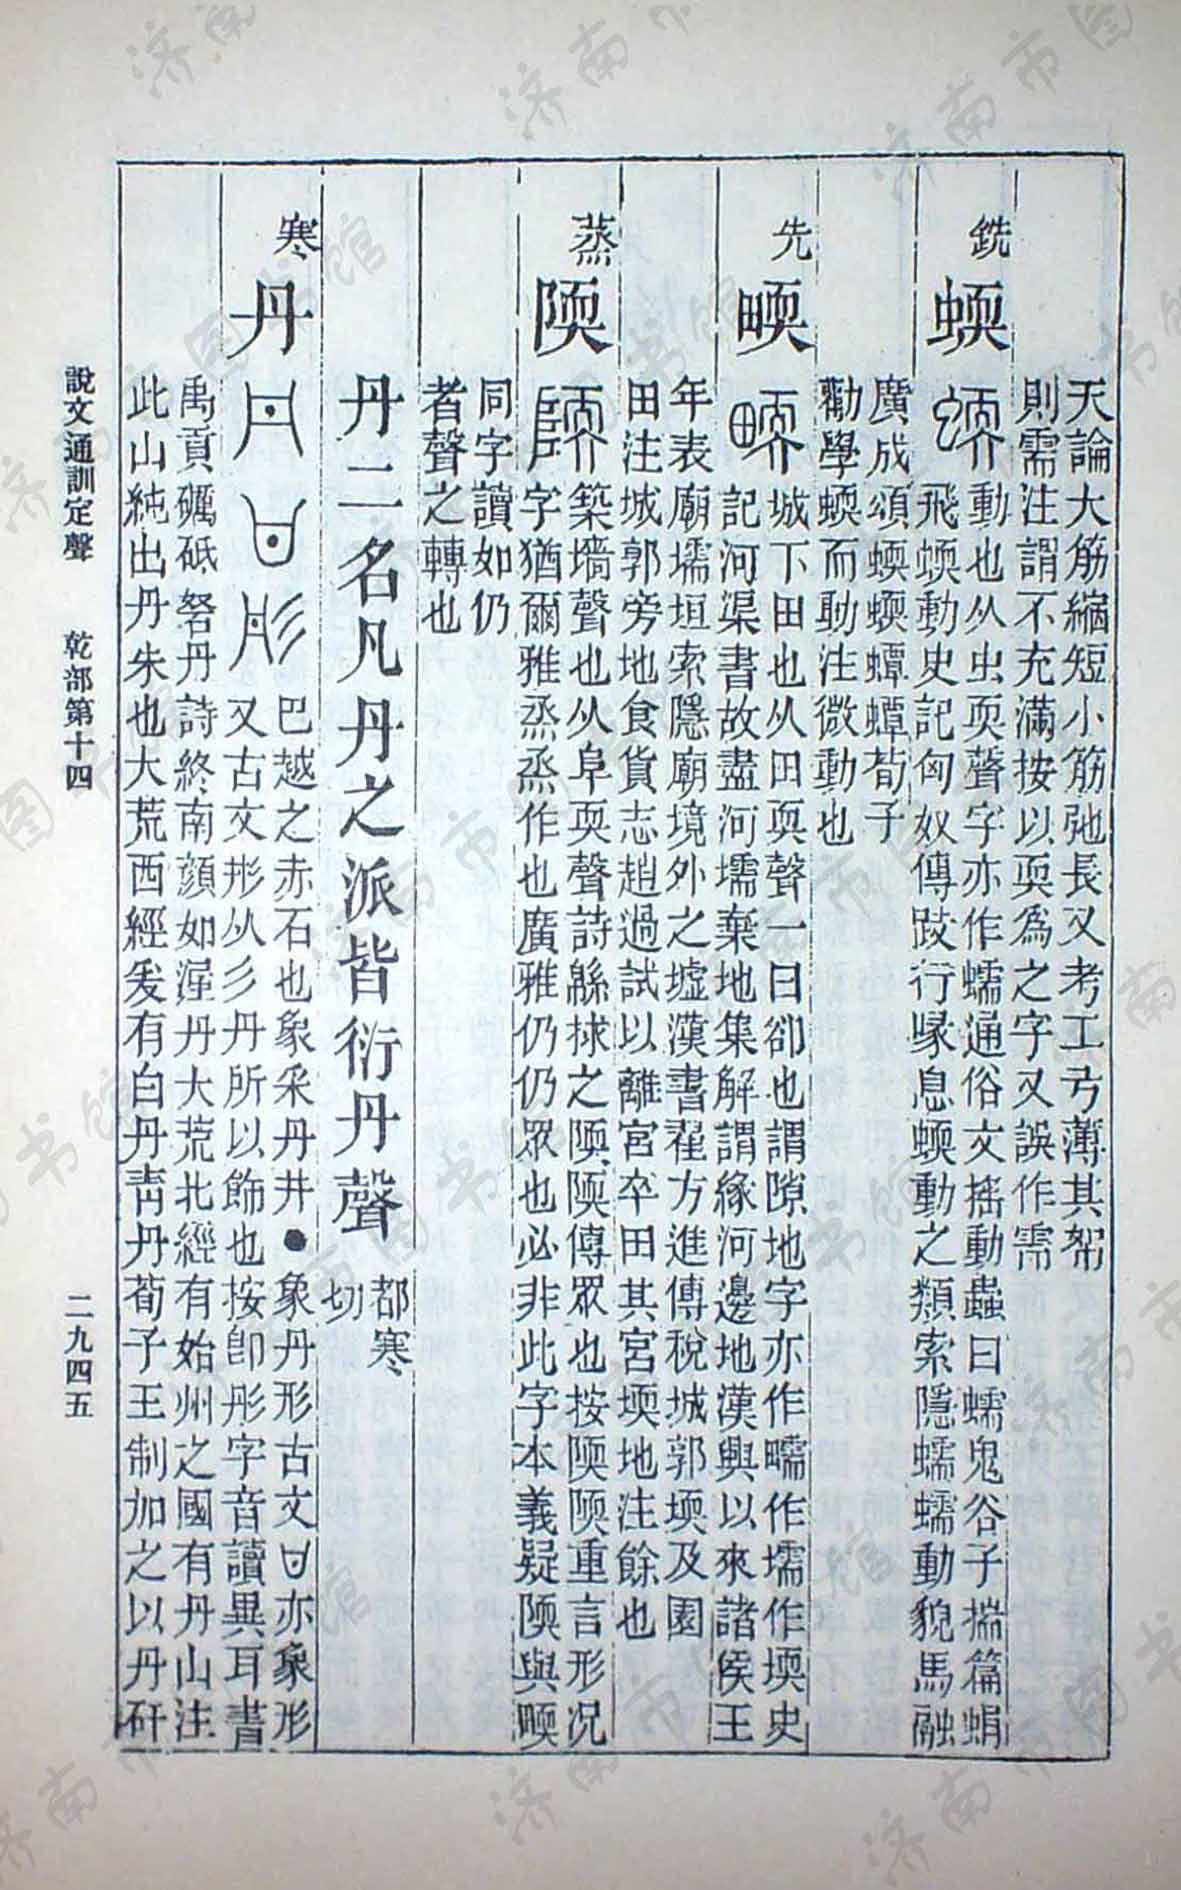 天論大筋縮短小筋弛長又考工弓薄其帤
則需注謂不充滿按以耎爲之字又誤作需
銑
蝡
動也从虫耎聲字亦作蠕通俗文搖動蟲曰蠕鬼谷子揣篇蜎
飛蝡動史記匈奴傳跂行喙息蝡動之類索隱蠕蠕動貌馬融
廣成頌蝡蝡蟫蟫荀子
勸學蝡而動注微動也
先
㬉
城下田也从田耎聲一曰卻也謂隙地字亦作𤲬作壖作堧史
記河渠書故盡河壖棄地集解謂緣河邊地漢興以來諸侯王
年表廟壖垣索隱廟境外之墟漢書翟方進傳稅城郭堧及園
田注城郭旁地食貨志趙過試以離宮卒田其宮堧地注餘也
蒸
陾
築墻聲也从阜耎聲詩緜捄之陾陾傳眾也按陾陾重言形況
字猶爾雅烝烝作也廣雅仍仍眾也必非此字本義疑陾與㬉
同字讀如仍
者聲之轉也
丹二名凡丹之派皆衍丹聲 都寒
切
寒
丹
巴越之赤石也象采丹井●象丹形古文𠁿亦象形
又古文彤从彡丹所以飾也按卽彤字音讀異耳書
禹貢礪砥砮丹詩終南顏如渥丹大荒北經有始州之國有丹山注
此山純出丹朱也大荒西經爰有白丹靑丹荀子王制加之以丹矸
說文通訓定聲 乾部第十四 二九四五